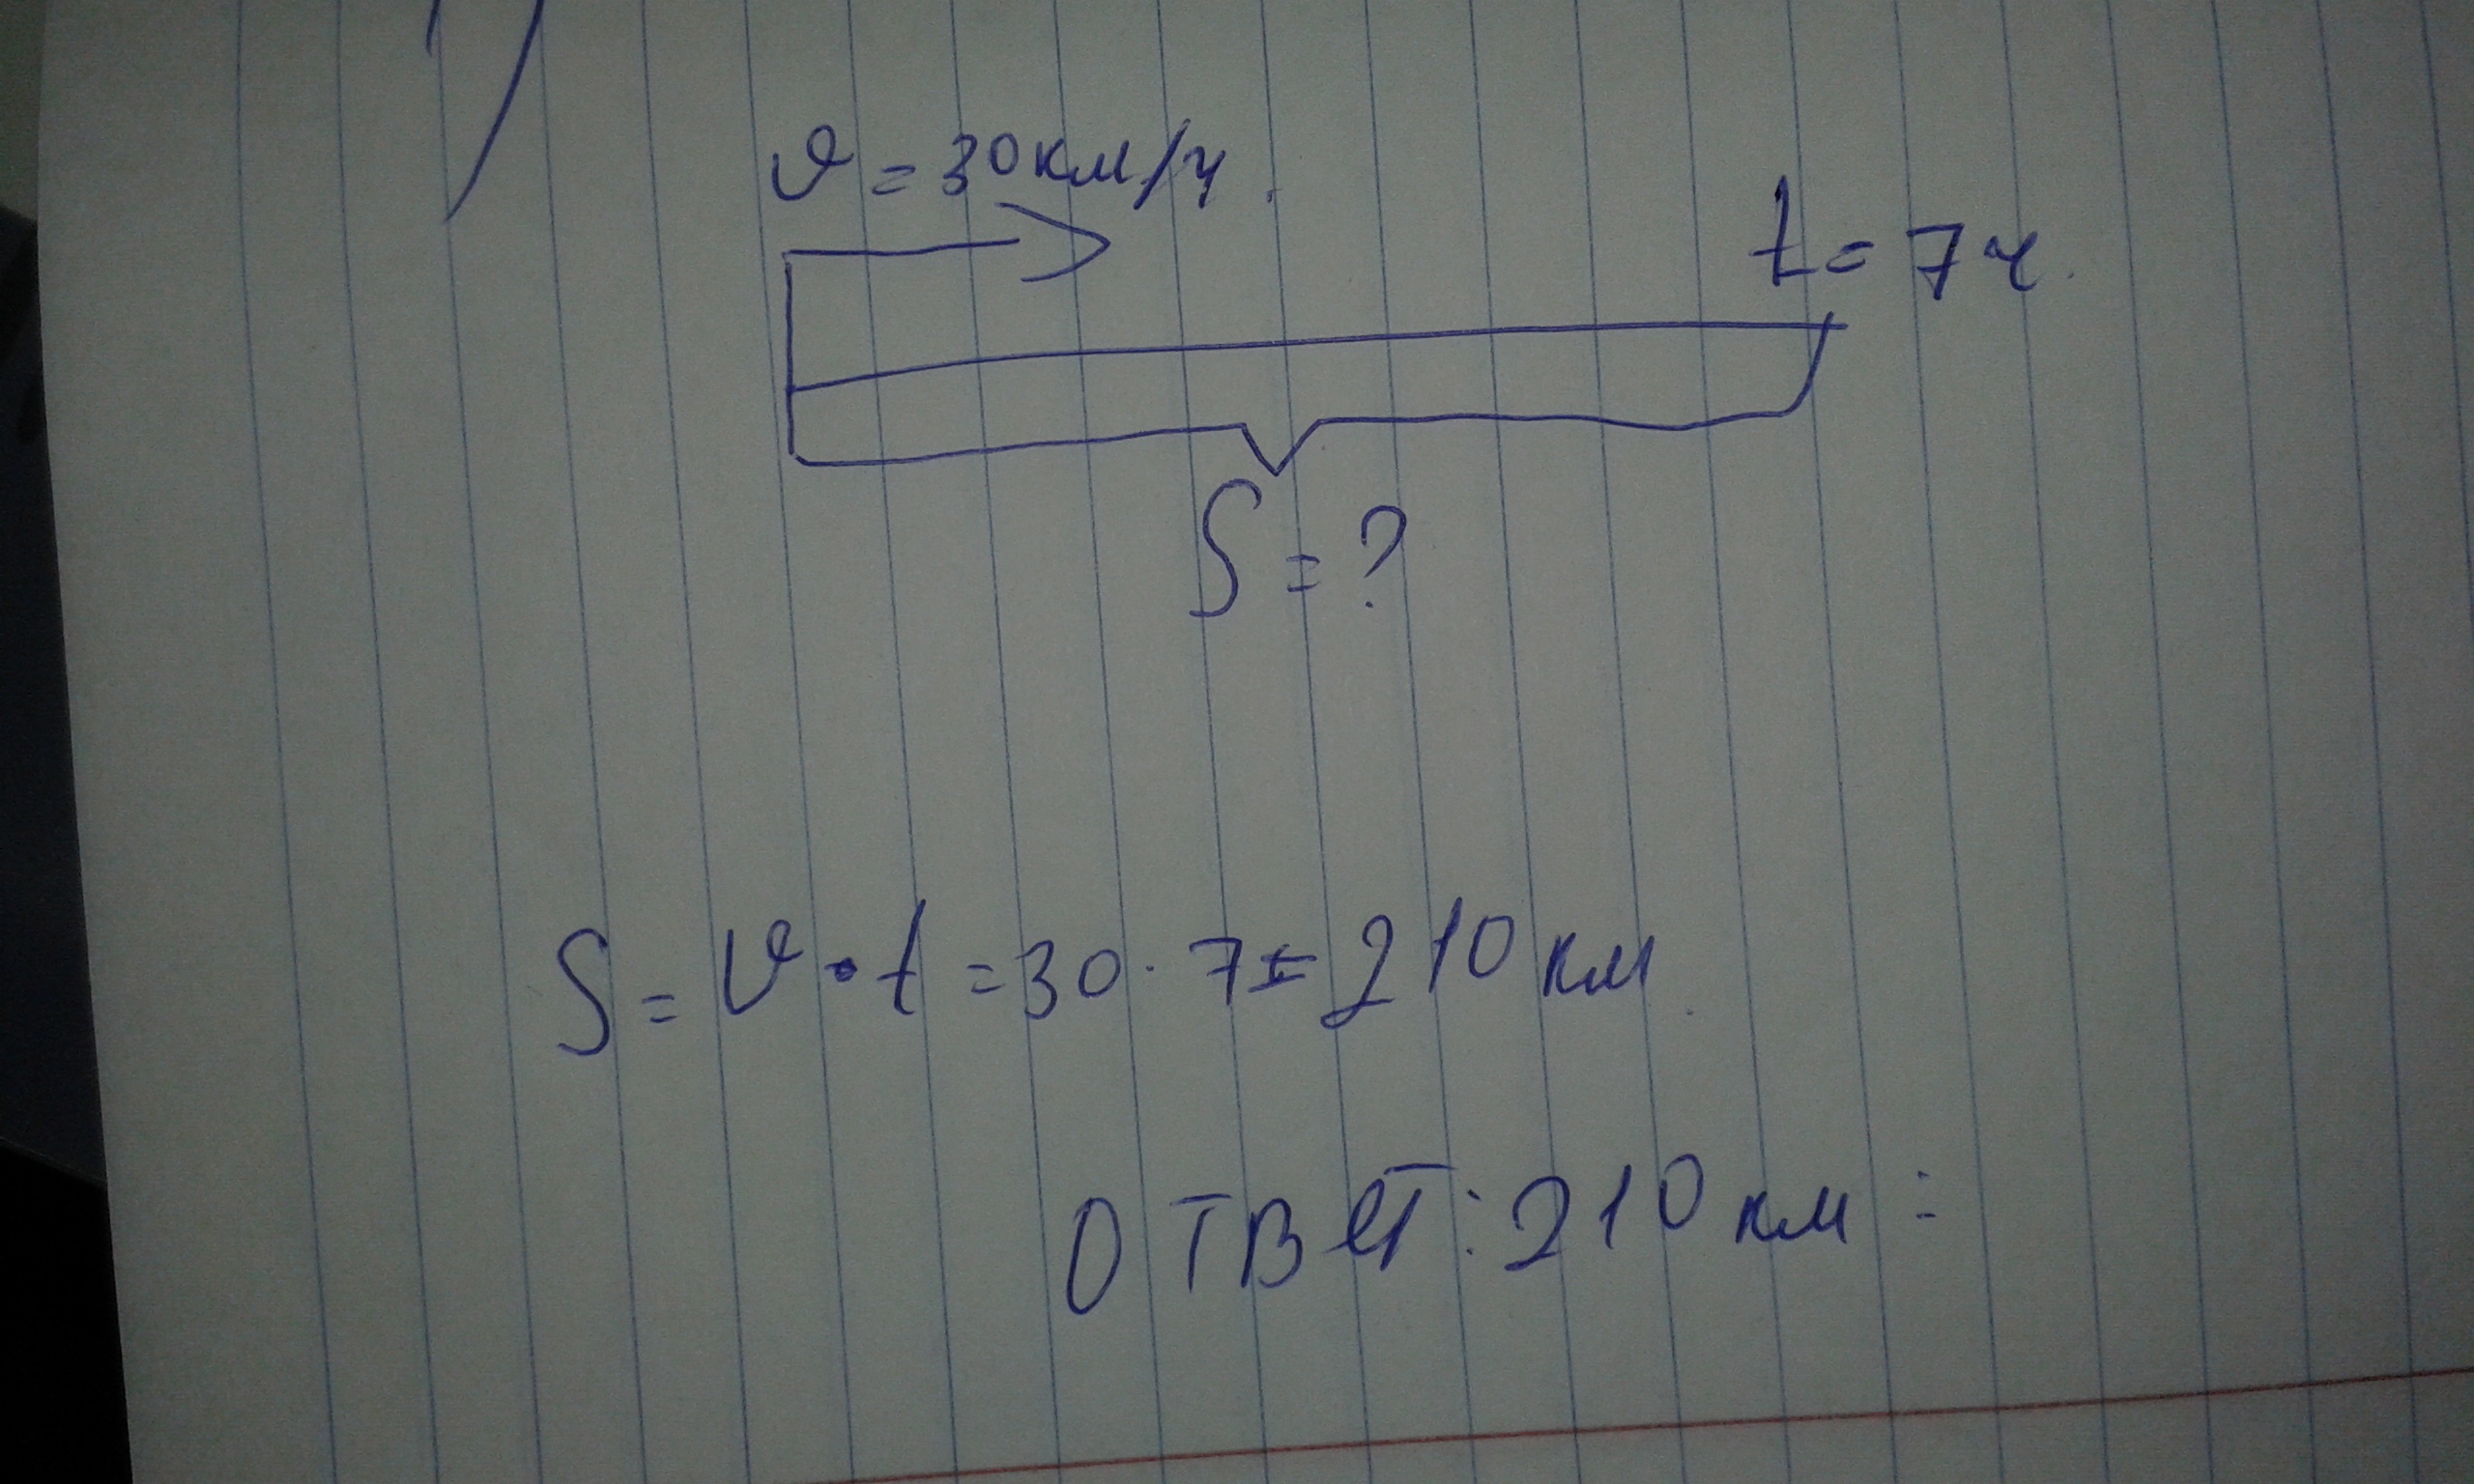 𝑣 = 30 км/ч.
t = 7 ч.
S = ?
S = 𝑣 · t = 30 · 7 = 210 км
Ответ: 210 км